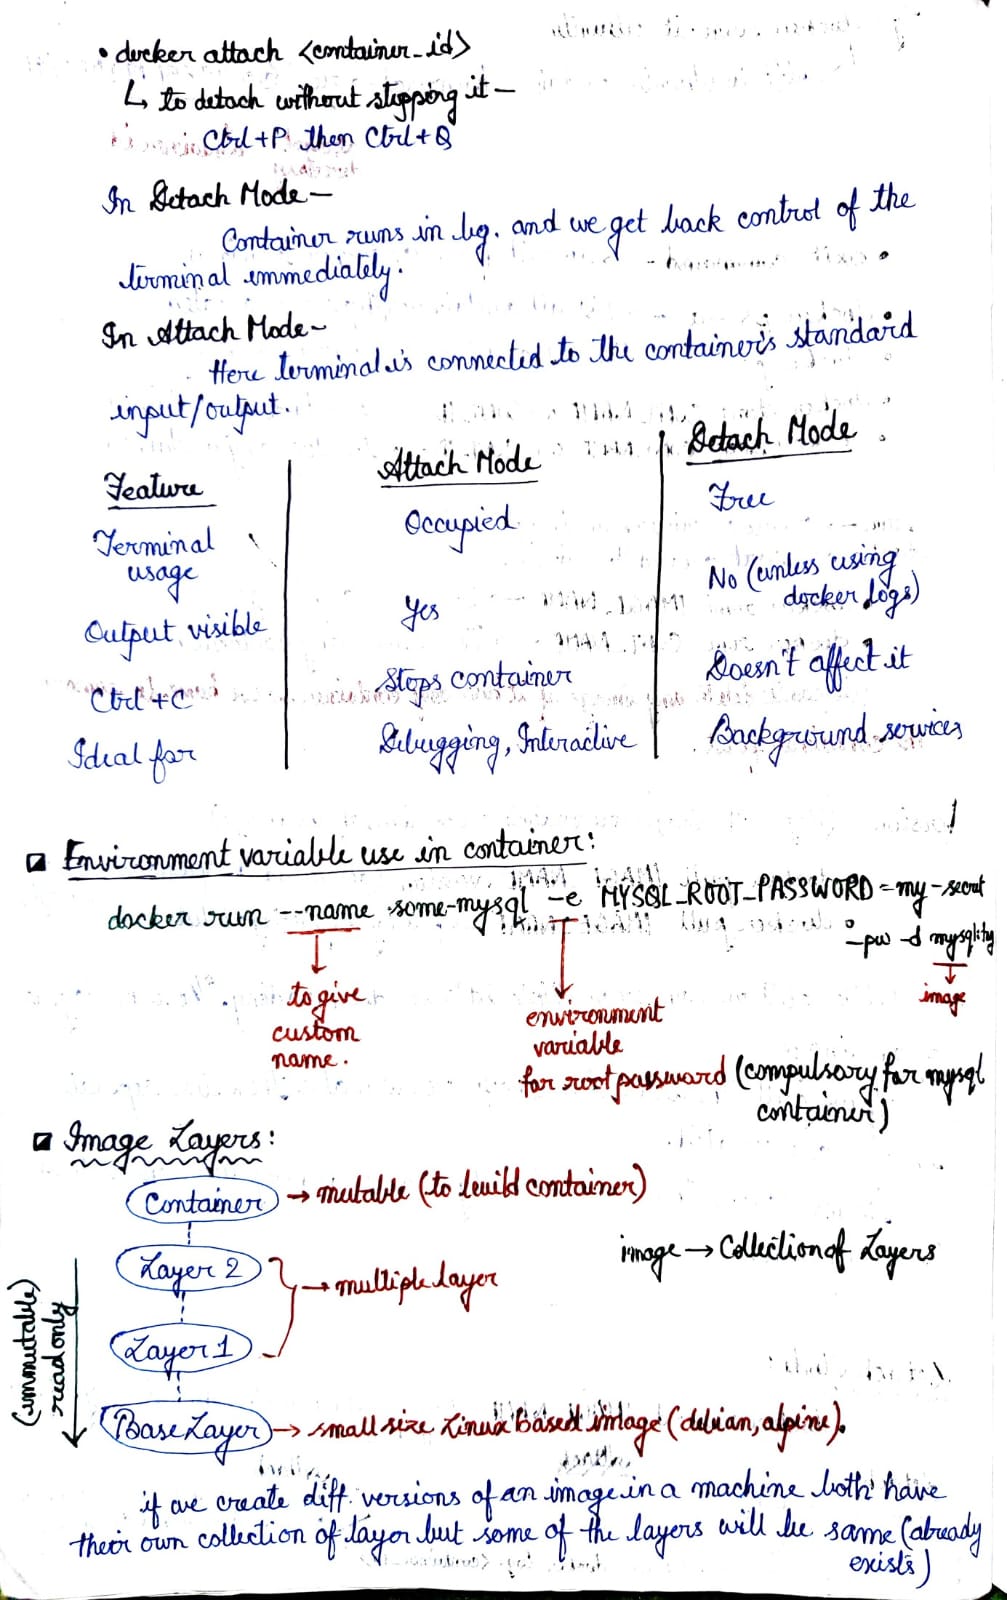 • docker attach <container_id>
↳ to detach without stopping it –
Ctrl+P, then Ctrl+Q
In Detach Mode –
Container runs in bg. and we get back control of the
terminal immediately.
In Attach Mode –
Here terminal is connected to the container's standard
input/output.
Feature | Attach Mode | Detach Mode
Terminal usage | Occupied | Free
Output visible | Yes | No (unless using docker logs)
Ctrl + C | Stops container | Doesn't affect it
Ideal for | Debugging, Interactive | Background services
Environment variable use in container:
docker run --name some-mysql -e MYSQL_ROOT_PASSWORD=my-secret
-pw -d mysql:tag
to give
custom
name.
environment
variable
for root password (compulsory for mysql
container)
image
Image Layers:
Container → mutable (to build container)
image → Collection of Layers
Layer 2
→ multiple layer
Layer 1
(immutable)
read only
Base Layer → small size Linux Based image (debian, alpine).
if we create diff. versions of an image in a machine both have
their own collection of layer but some of the layers will be same (already
exists)